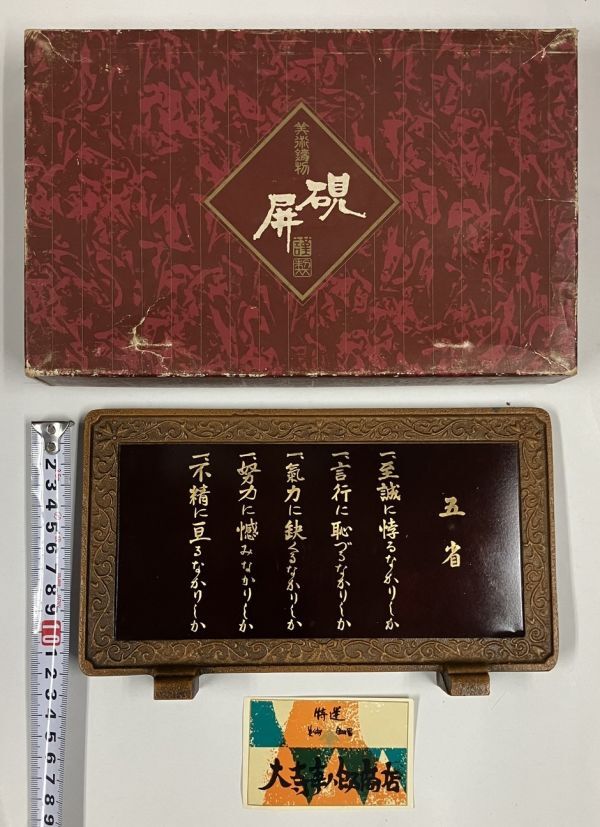 美術鋳物
硯屏
謹製
五省
一、至誠に悖るなかりしか
一、言行に恥づるなかりしか
一、氣力に缺くるなかりしか
一、努力に憾みなかりしか
一、不精に亘るなかりしか
2 3 4 5 6 7 8 9 10 1 2 3 4 5 6 7 8 9
特選